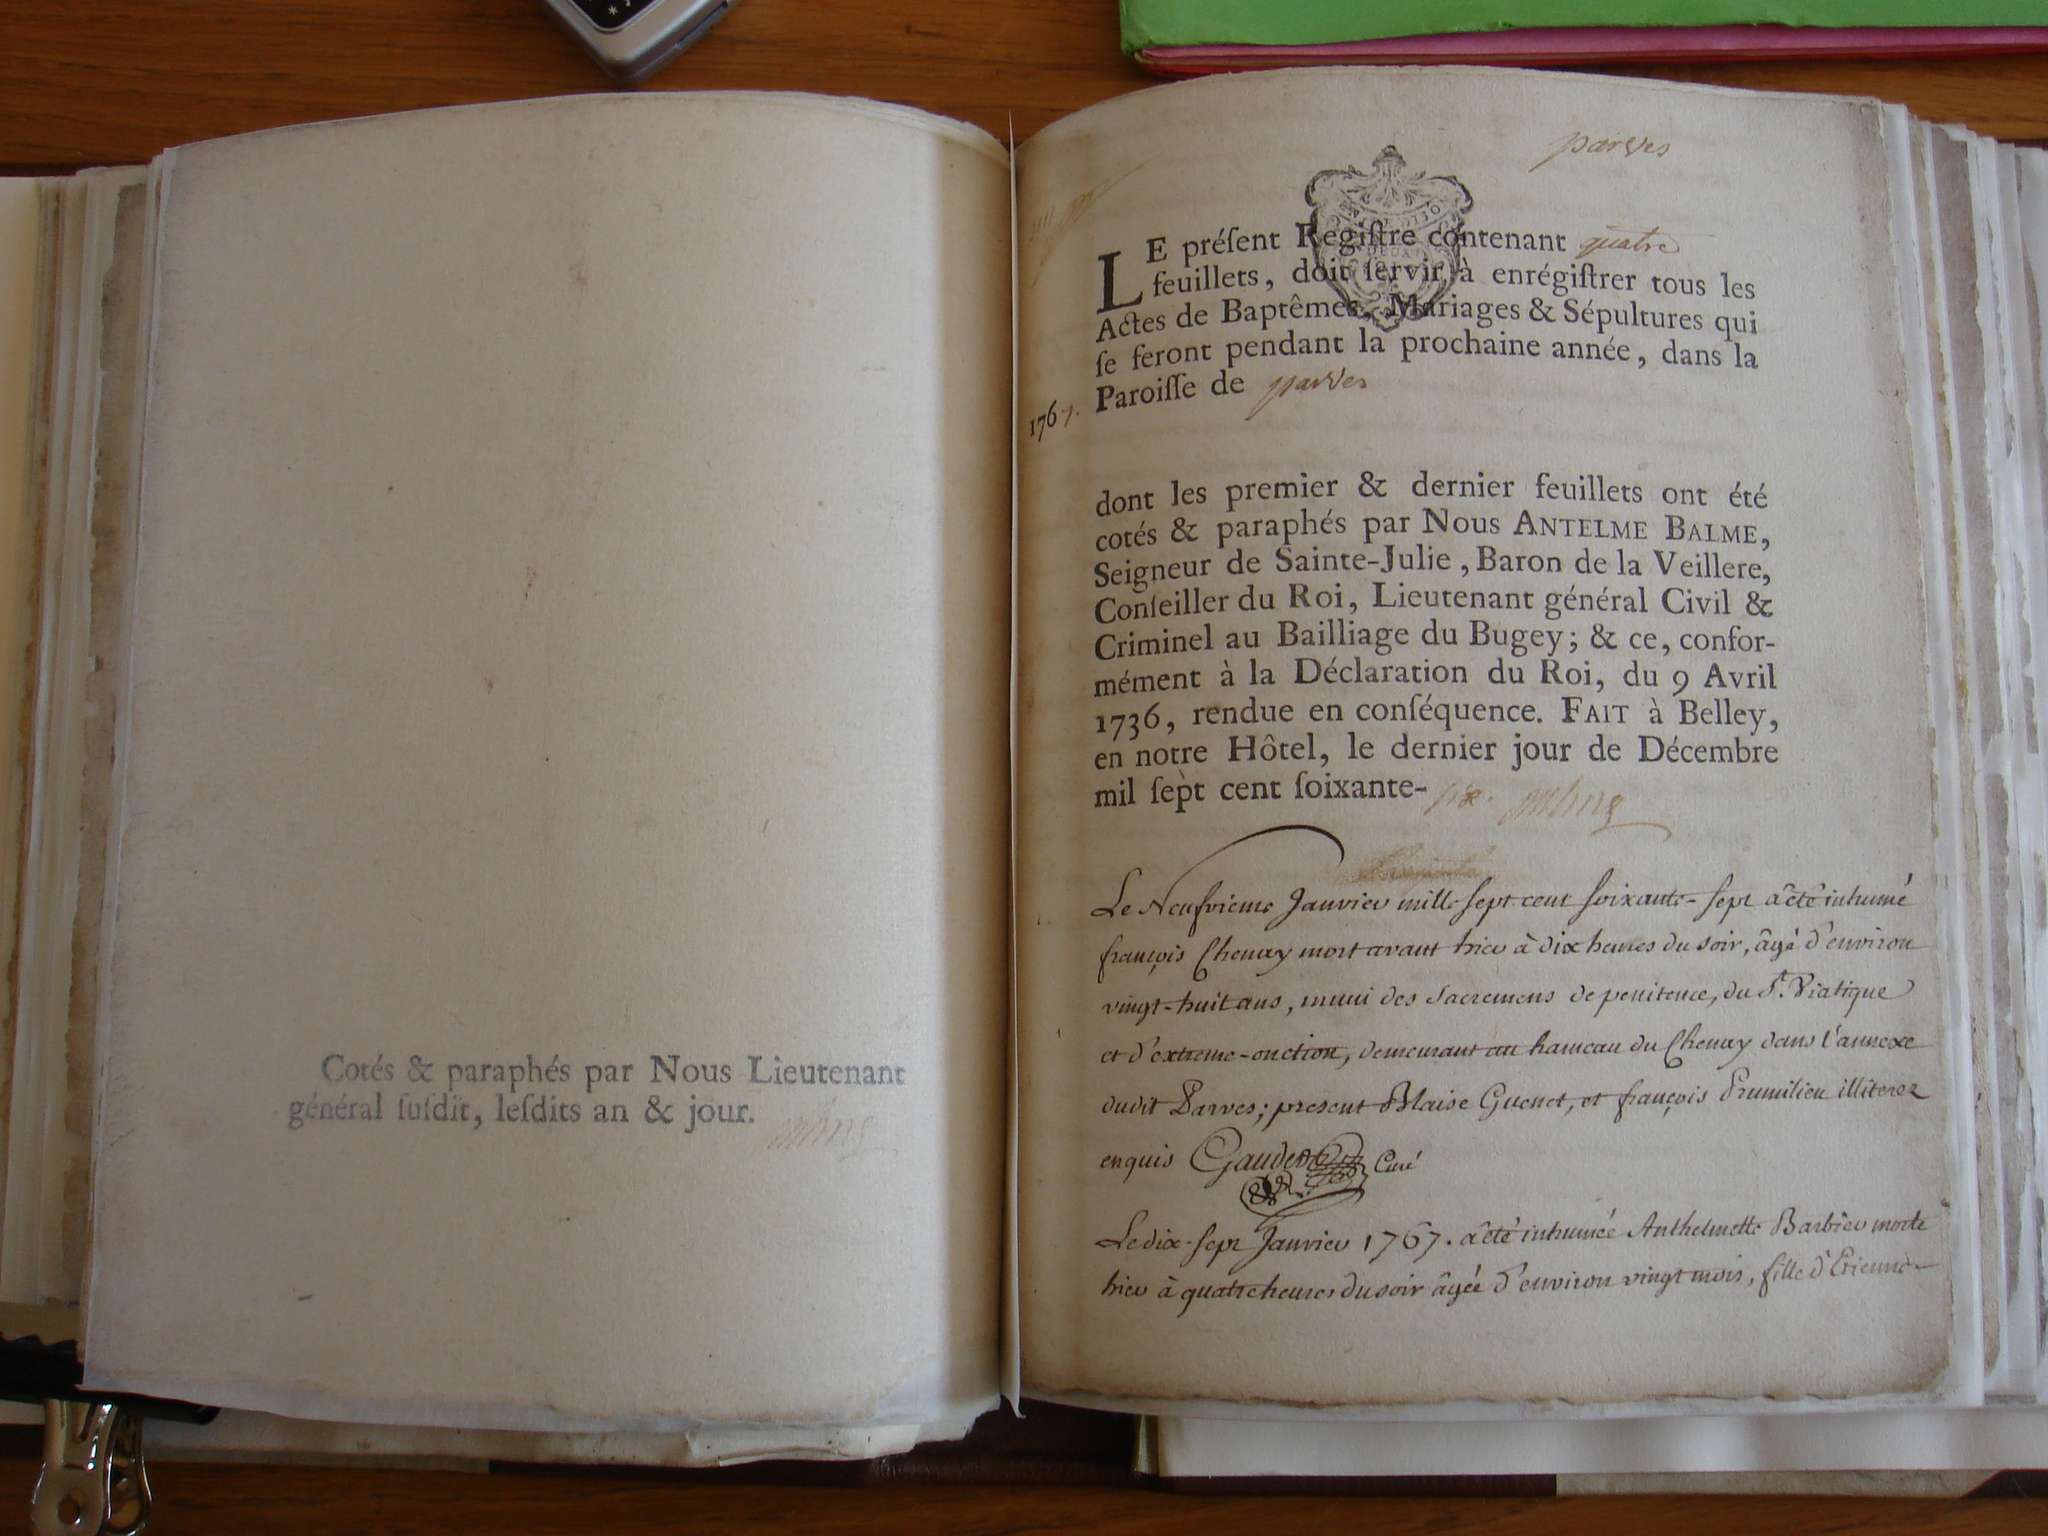 Cotés & paraphés par Nous Lieutenant
général ſuſdit, leſdits an & jour.
parves
LE préſent Regiſtre contenant quatre
feuillets, doit ſervir à enrégiſtrer tous les
Actes de Baptêmes, Mariages & Sépultures qui
ſe feront pendant la prochaine année, dans la
Paroiſſe de parves
1767.
dont les premier & dernier feuillets ont été
cotés & paraphés par Nous ANTELME BALME,
Seigneur de Sainte-Julie, Baron de la Veillere,
Conſeiller du Roi, Lieutenant général Civil &
Criminel au Bailliage du Bugey; & ce, confor-
mément à la Déclaration du Roi, du 9 Avril
1736, rendue en conſéquence. FAIT à Belley,
en notre Hôtel, le dernier jour de Décembre
mil ſept cent ſoixante-six.
Le Neufvieme Janvier mille sept cent soixante-sept a été inhumé
françois Chenay mort avant hier à dix heures du soir, âgé d'environ
vingt-huit ans, muni des sacremens de penitence, du St. Viatique
et d'extreme-onction, demeurant au hameau du Chenay dans l'annexe
dudit Parves; present Blaise Guenet, et françois Prumilieu illiterez
enquis Curé
Le dix-sept Janvier 1767. a été inhumée Anthelmette Barbier morte
hier à quatre heures du soir âgée d'environ vingt mois, fille d'Etienne